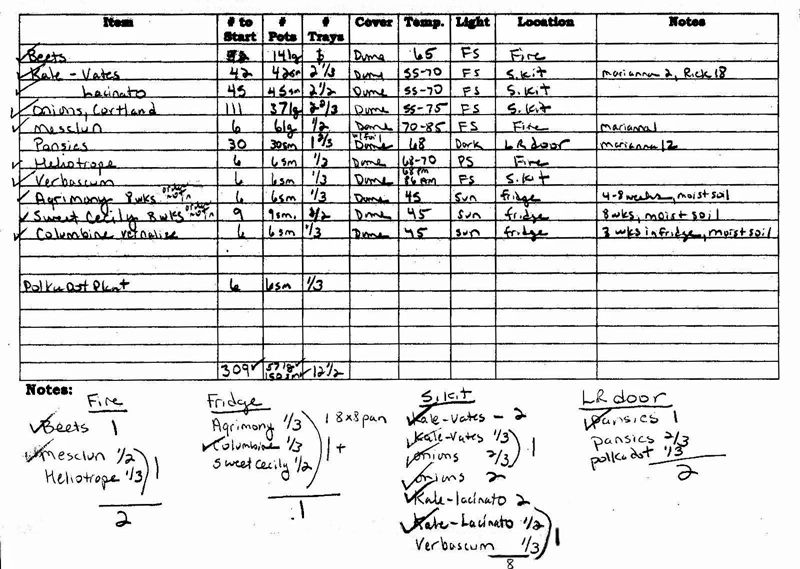 Item # to Start # Pots # Trays Cover Temp. Light Location Notes
Beets 14lg Dome 65 FS Fire
Kale - Vates 42 42sm 2 1/3 Dome 55-70 FS S.Kit marianna 2, Rick 18
Lacinato 45 45sm 2 1/2 Dome 55-70 FS S.Kit
Onions, Cortland 111 37lg 2 2/3 Dome 55-75 FS S.Kit
Mesclun 6 6lg 1/2 Dome 70-85 FS Fire marianna 1
Pansies 30 30sm 1 2/3 w/foil Dome 68 Dark LR door marianna 12
Heliotrope 6 6sm 1/2 Dome 68-70 PS Fire
Verbascum 6 6sm 1/3 Dome 68 PM 86 AM FS S.Kit
Agrimony 8 wks 6 6sm 1/3 Dome 45 Sun fridge 4-8 weeks, moist soil
Sweet Cecily 8 wks 9 9sm 1/2 Dome 45 sun fridge 8 wks, moist soil
Columbine vernalise 6 6sm 1/3 Dome 45 sun fridge 3 wks in fridge, moist soil
Polka Dot Plant 6 6sm 1/3
309 57lg 150sm 12 1/2
Notes:
Fire
Beets 1
mesclun 1/2
Heliotrope 1/3 1
2
Fridge
Agrimony 1/3 1 8x8 pan
Columbine 1/3 1+
Sweet Cecily 1/2
1
S.Kit
Kale-Vates - 2
Kale-Vates 1/3
Onions 2/3 1
Onions 2
Kale-lacinato 2
Kale-Lacinato 1/2
Verbascum 1/3 1
8
LR door
pansies 1
pansies 2/3
polkadot 1/3
2